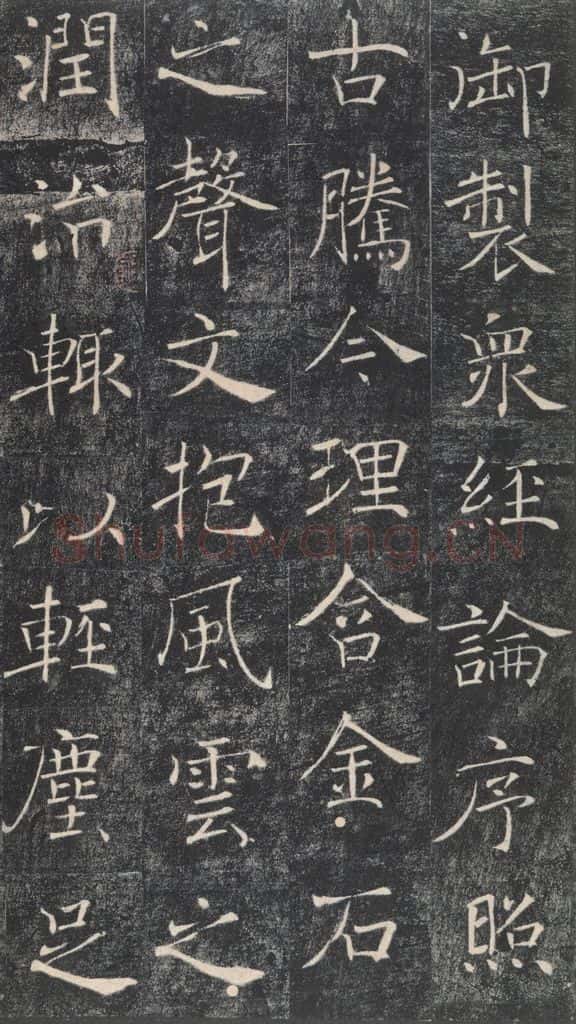 御製眾經論序照
古騰今理含金石
之聲文抱風雲之
潤治輙以輕塵足
Shufawang.CN